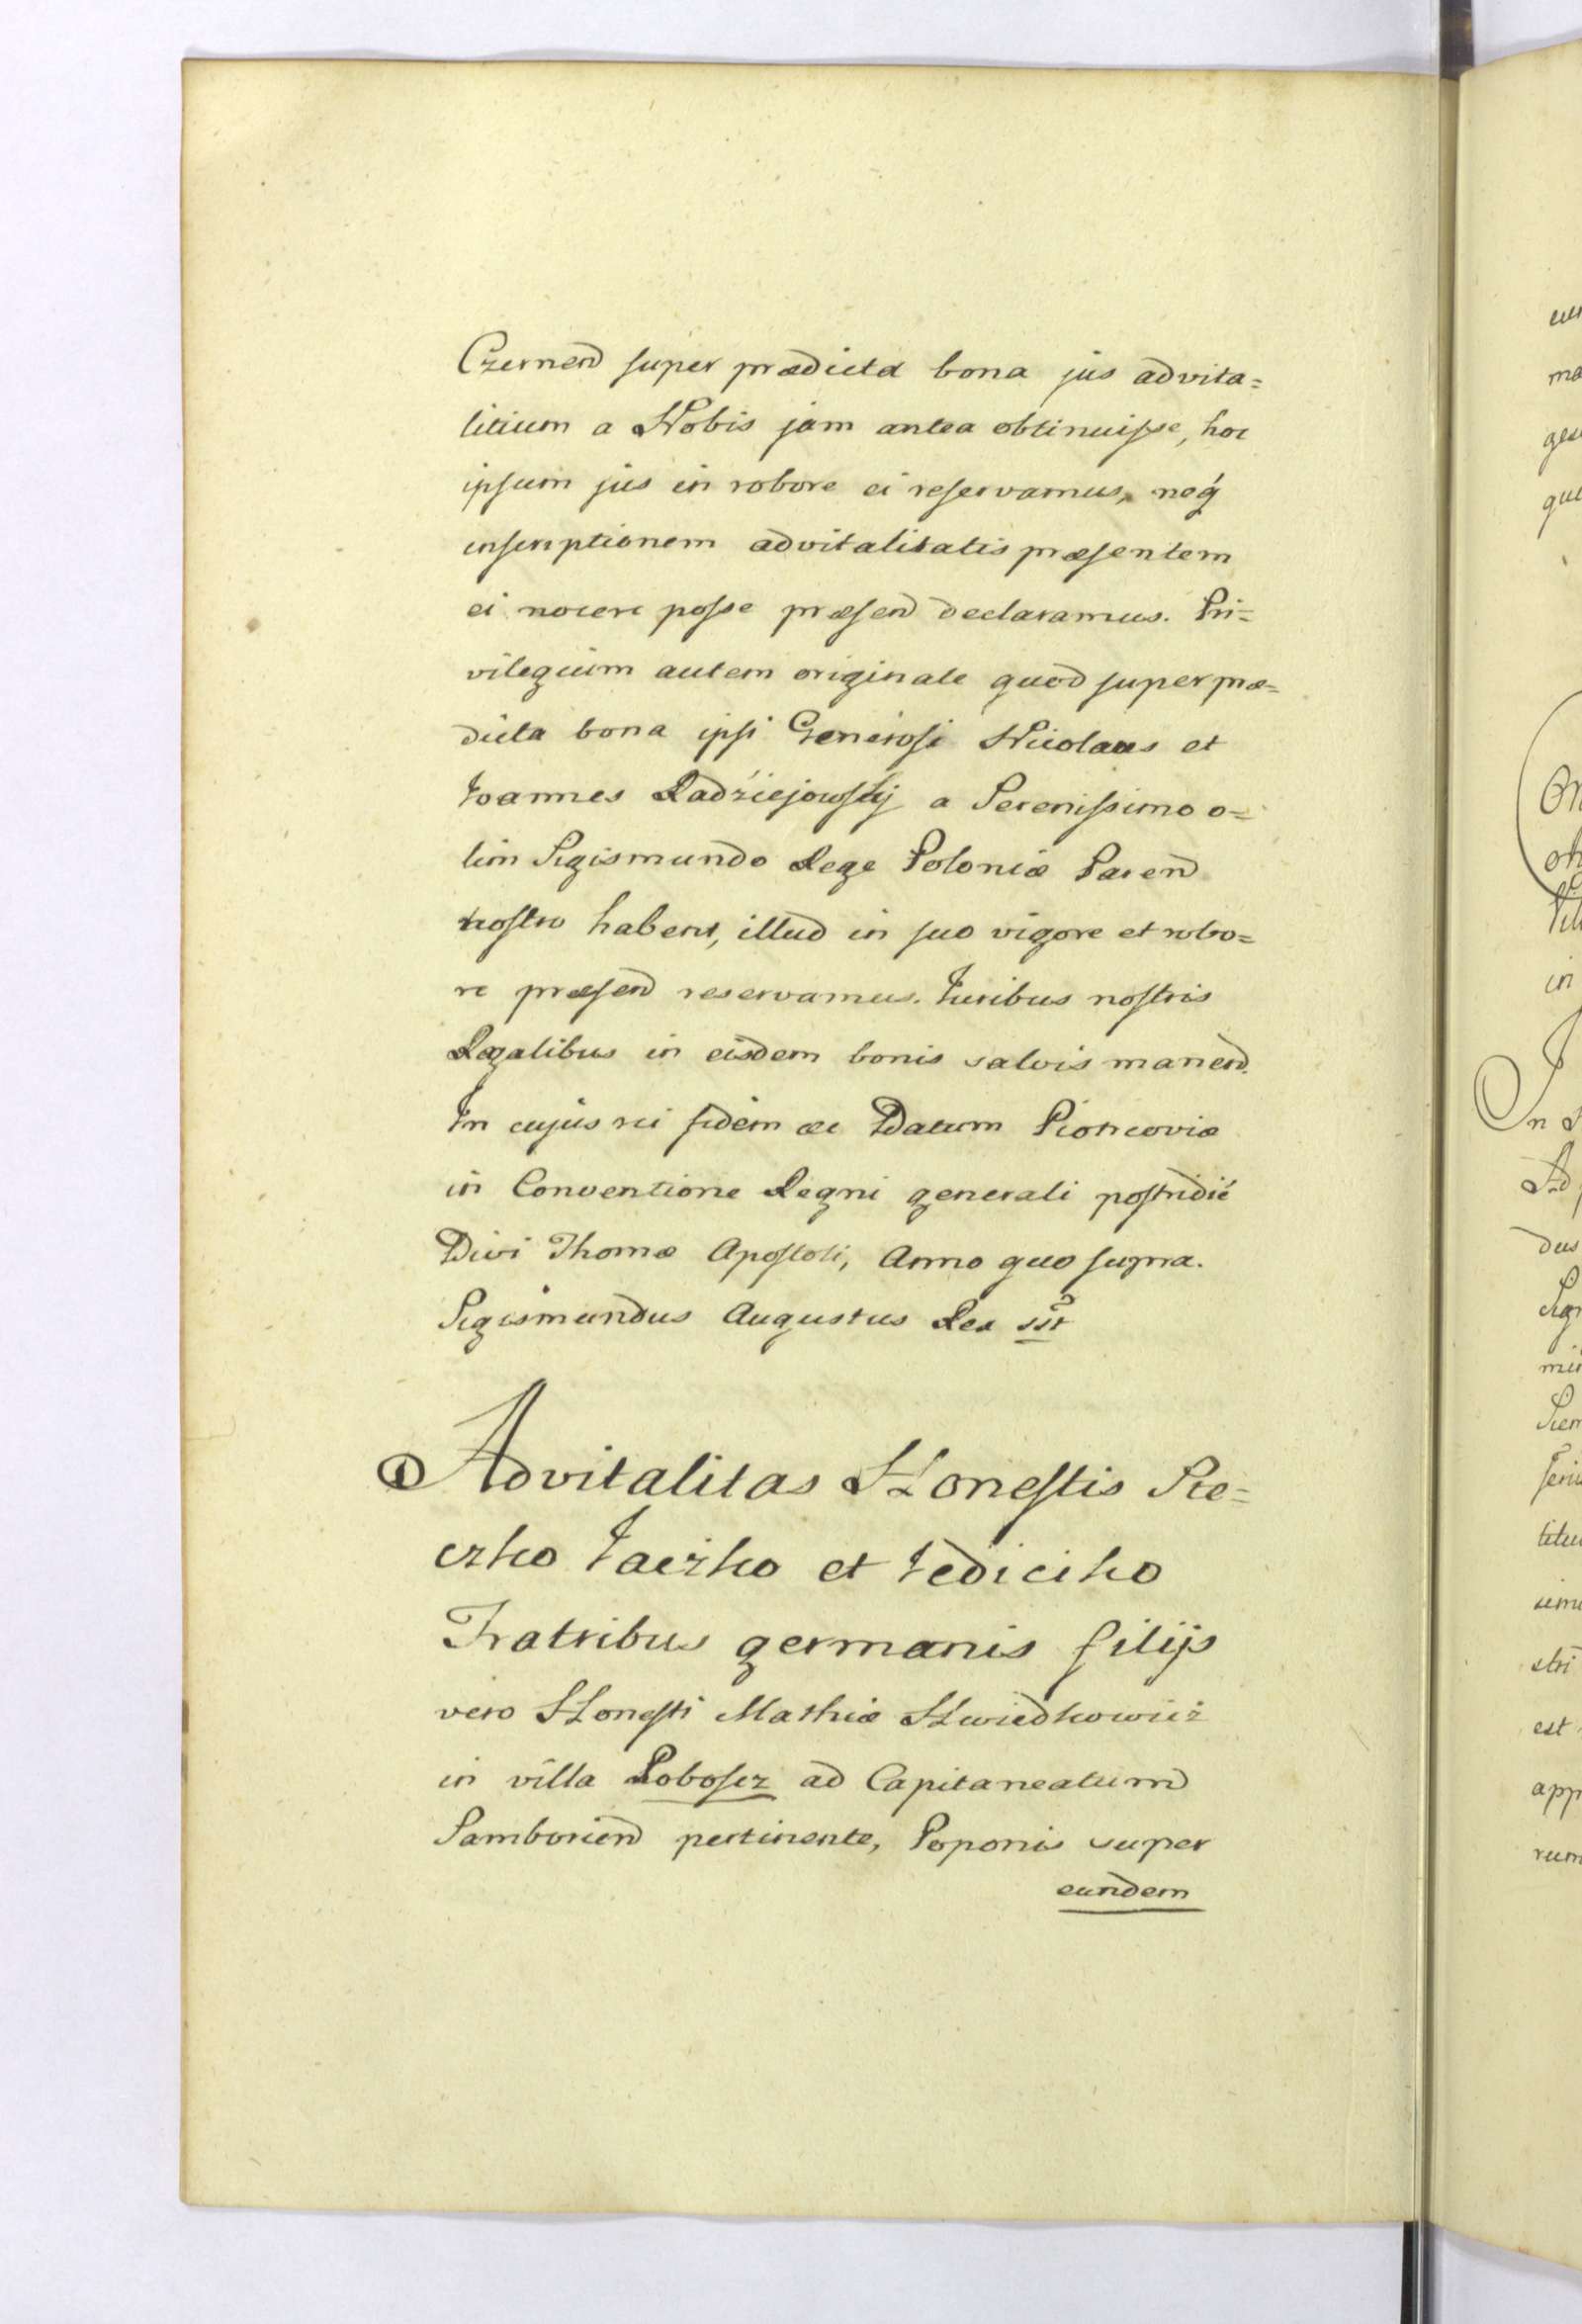 Czernen̄ super prædicta bona jus advita=
litium a Nobis jam antea obtinuisse, hoc
ipsum jus in robore ei reservamus, neq́
inscriptionem advitalitatis præsentem
ei nocere posse præsen̄ declaramus. Pri=
vilegium autem originale quod super præ=
dicta bona ipsi Generosi Nicolaus et
Joannes Radziejowskij a Serenissimo o=
lim Sigismundo Rege Poloniæ Paren̄
nostro habent, illud in suo vigore et robo=
re præsen̄ reservamus. Juribus nostris
Regalibus in eisdem bonis salvis manen̄.
In cujus rei fidem &c Datum Piotrcoviæ
in Conventione Regni generali postridie
Divi Thomæ Apostoli, Anno quo supra.
Sigismundus Augustus Rex sst
Advitalitas Honestis Ste=
czko Jaczko et Fediczko
Fratribus germanis filijs
vero Honesti Mathiæ Hwiedkowicz
in villa Lobosez ad Capitaneatum
Samborien̄ pertinente, Poponis super
eundem